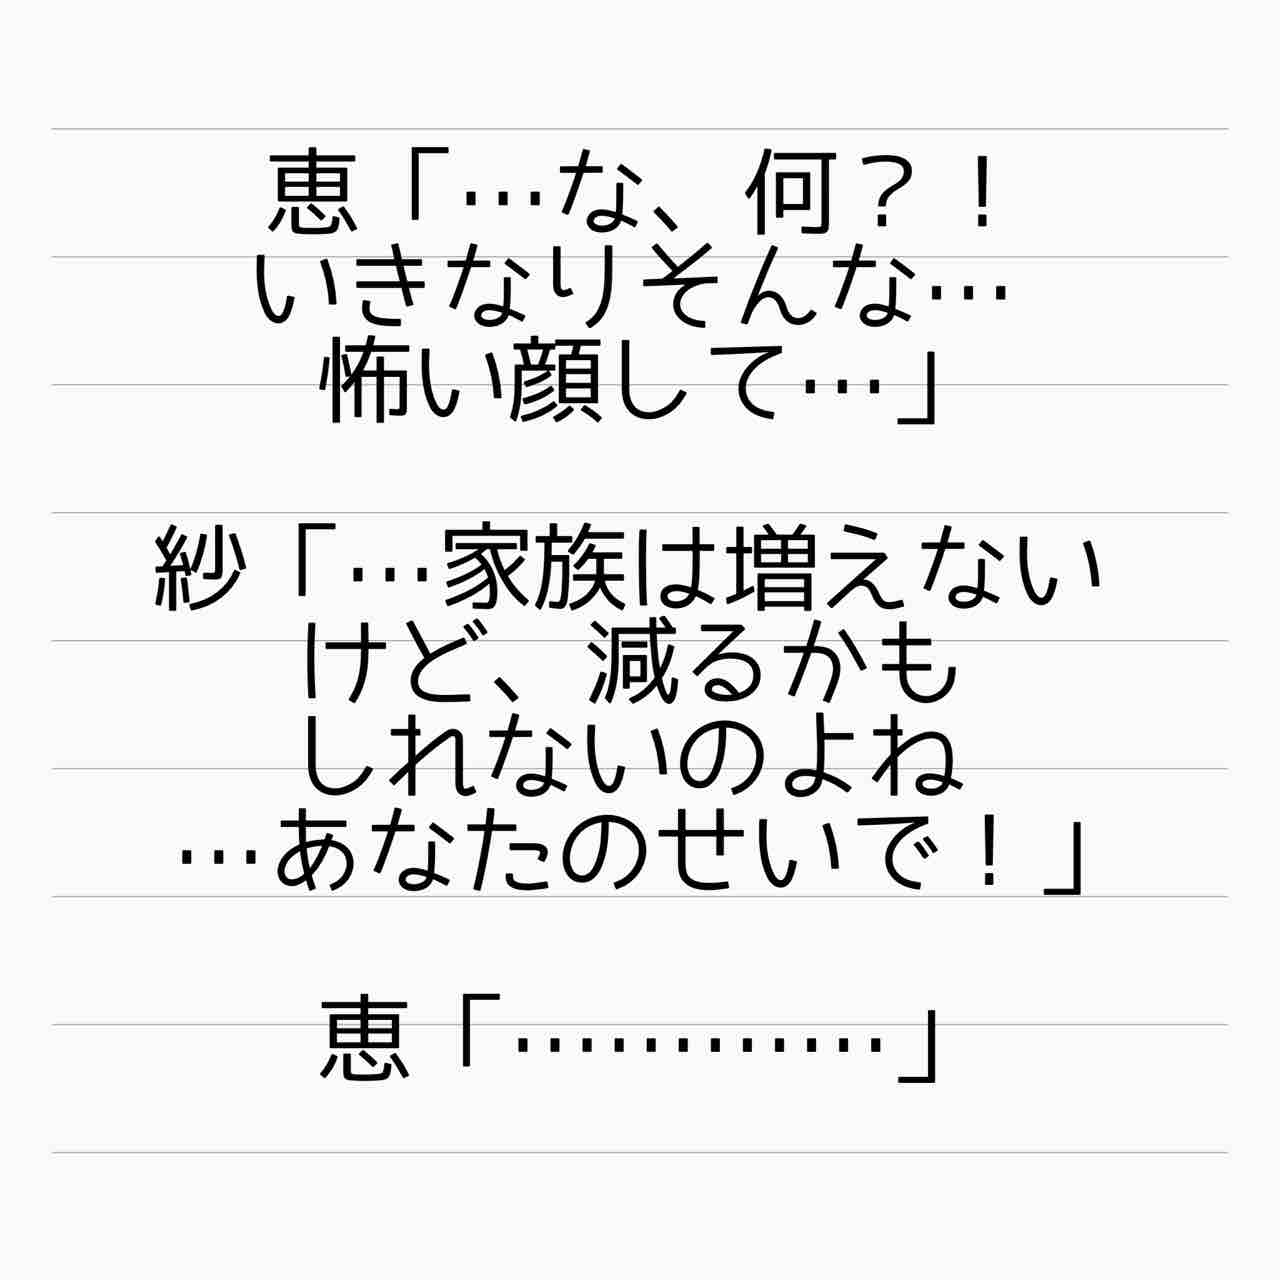 恵「…な、何？！
いきなりそんな…
怖い顔して…」
紗「…家族は増えない
けど、減るかも
しれないのよね
…あなたのせいで！」
恵「…………」